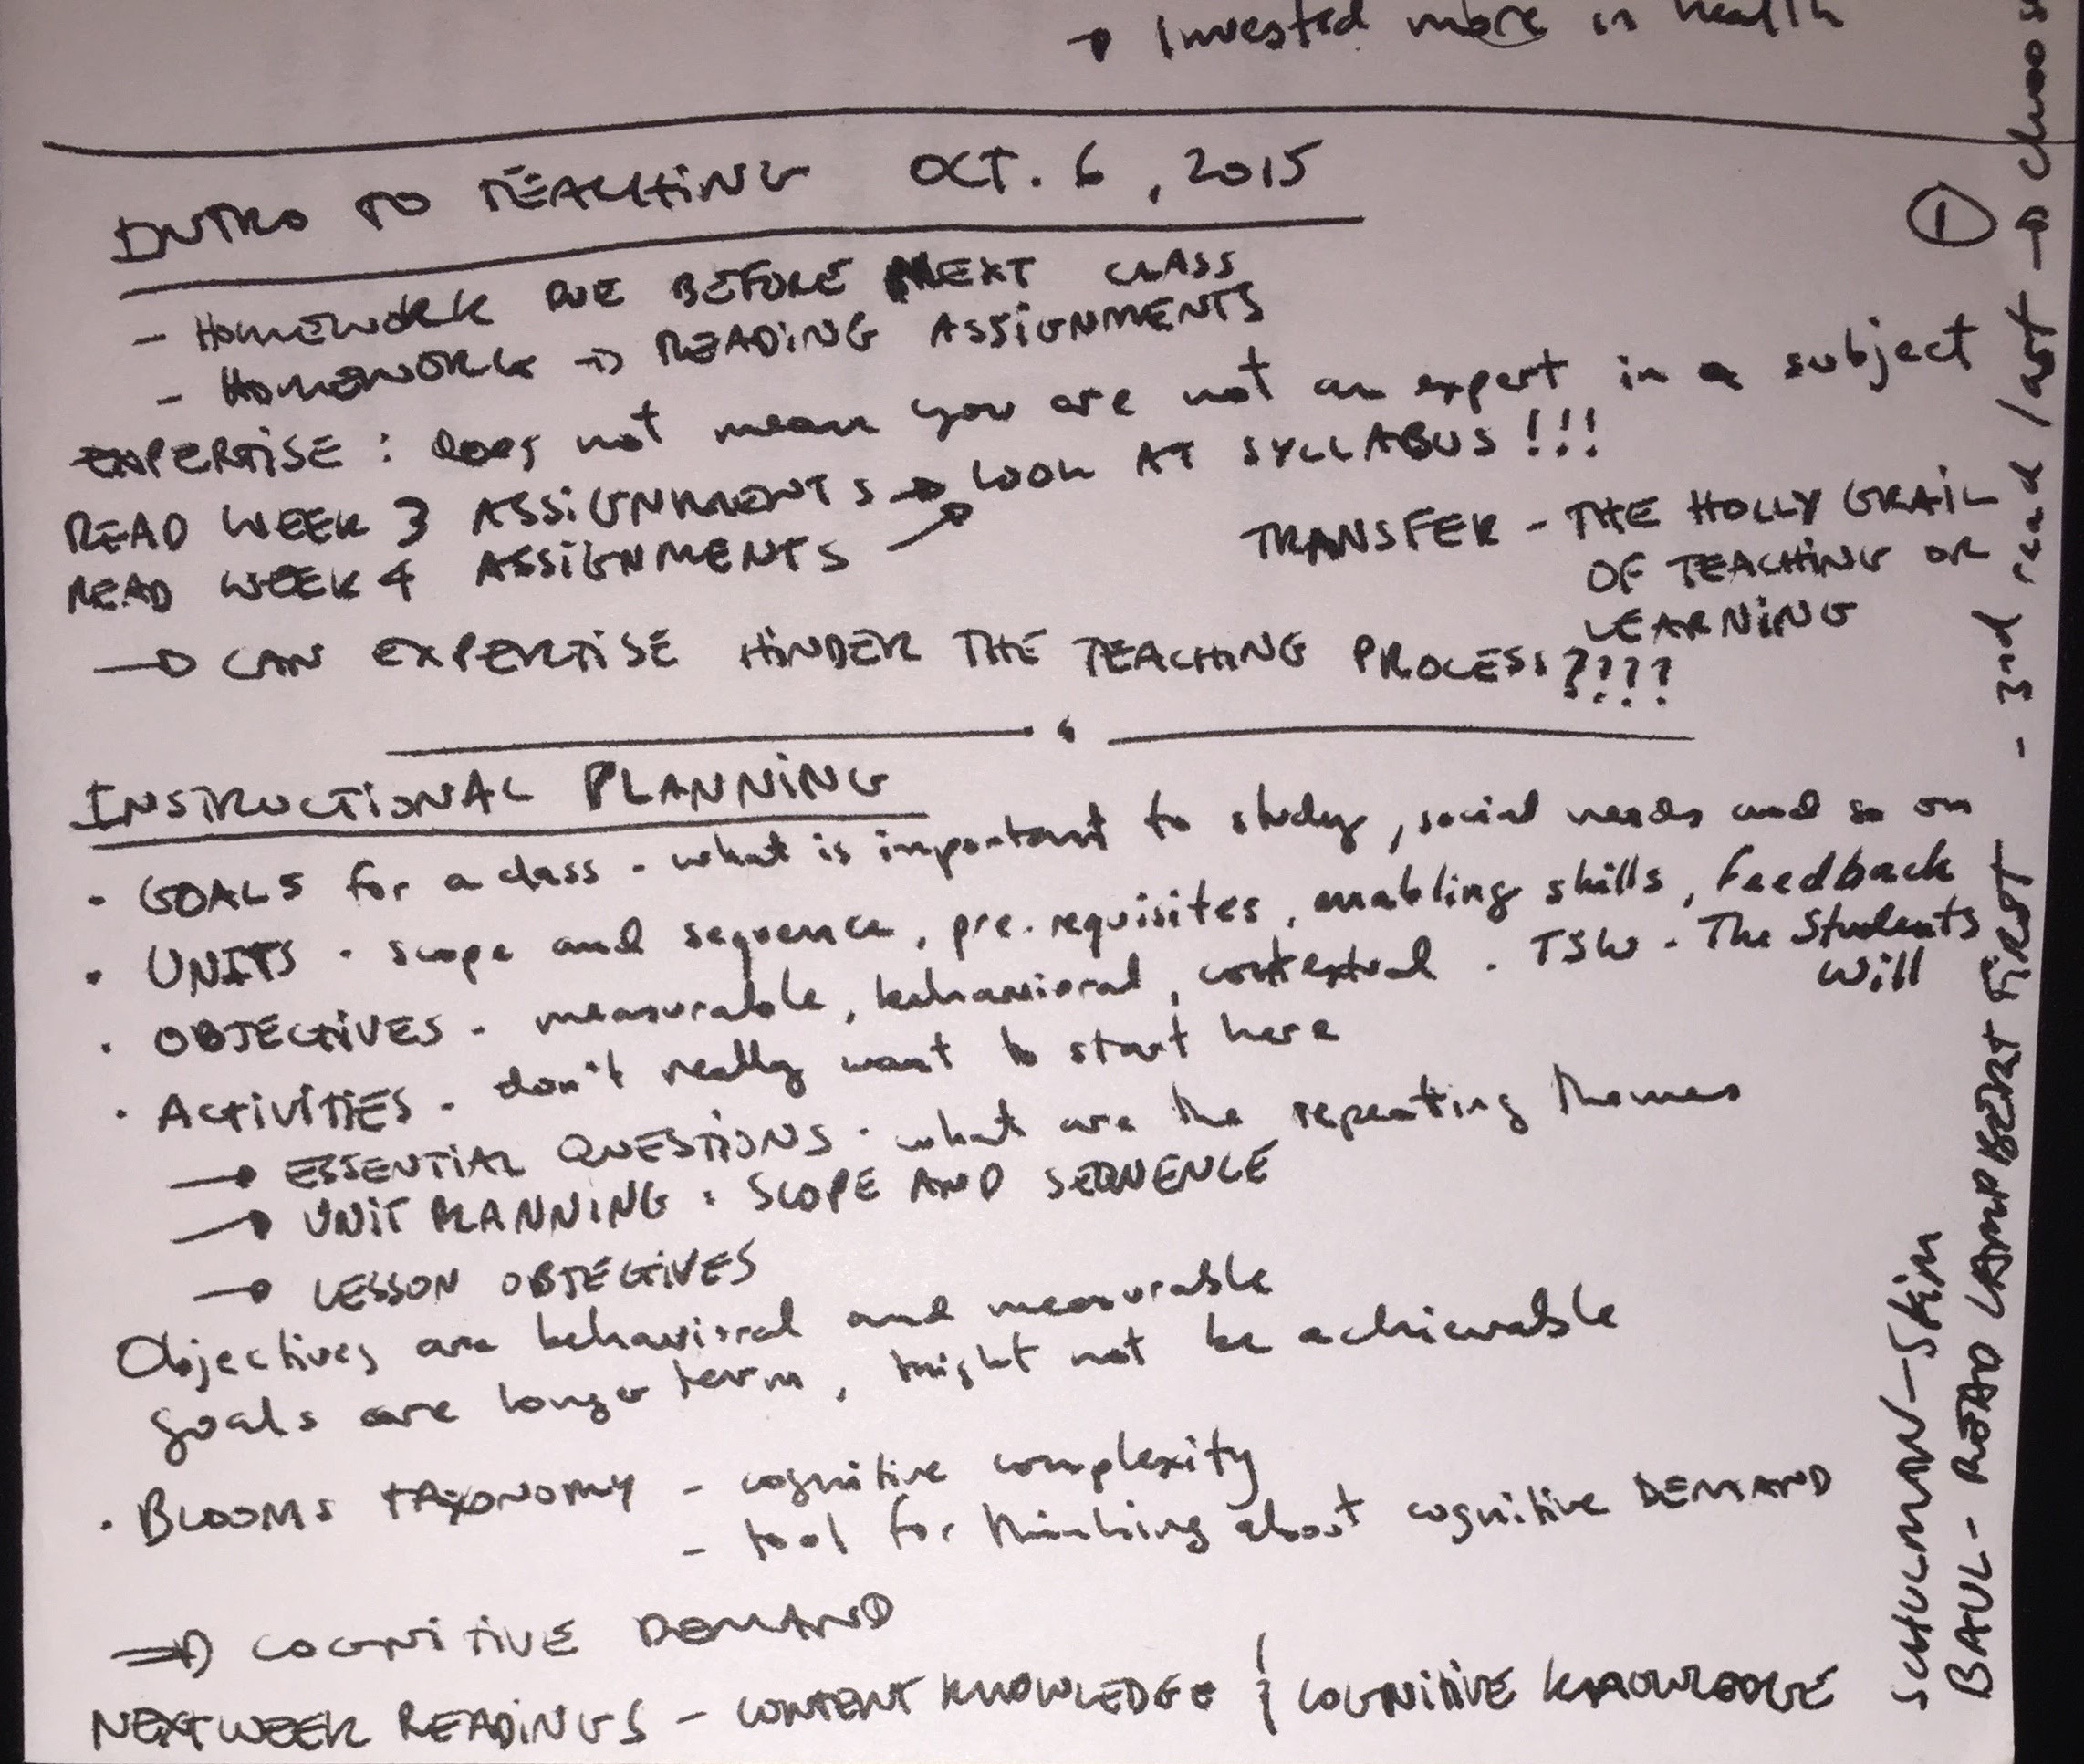 → Invested more in health
INTRO TO TEACHING OCT. 6, 2015
①
- HOMEWORK DUE BEFORE NEXT CLASS
- HOMEWORK → READING ASSIGNMENTS
EXPERTISE : does not mean you are not an expert in a subject
READ WEEK 3 ASSIGNMENTS → LOOK AT SYLLABUS!!!
READ WEEK 4 ASSIGNMENTS →
TRANSFER - THE HOLLY GRAIL
OF TEACHING OR
LEARNING
→ CAN EXPERTISE HINDER THE TEACHING PROCESS????
INSTRUCTIONAL PLANNING
• GOALS for a class - what is important to study, social needs and so on
• UNITS - scope and sequence, pre-requisites, enabling skills, feedback
• OBJECTIVES - measurable, behavioral, contextual - TSW - The Students
Will
• ACTIVITIES - don't really want to start here
→ ESSENTIAL QUESTIONS - what are the repeating themes
→ UNIT PLANNING - SCOPE AND SEQUENCE
→ LESSON OBJECTIVES
Objectives are behavioral and measurable
goals are longer term, might not be achievable
• BLOOMS TAXONOMY - cognitive complexity
- tool for thinking about cognitive DEMAND
⇒ COGNITIVE DEMAND
NEXT WEEK READINGS - CONTENT KNOWLEDGE & COGNITIVE KNOWLEDGE
SCHULMAN - Skim
BAUL - READ LAMPBERT FIRST - 3rd read /